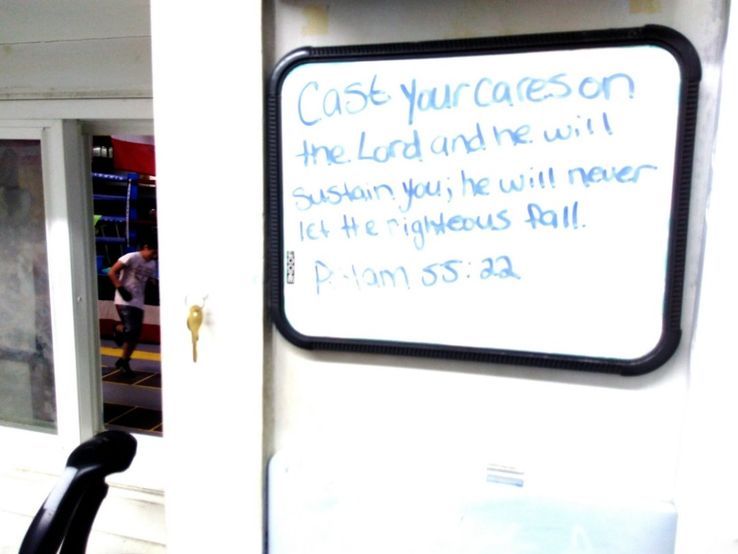 Cast your cares on
the Lord and he will
sustain you; he will never
let the righteous fall.
Pslam 55:22